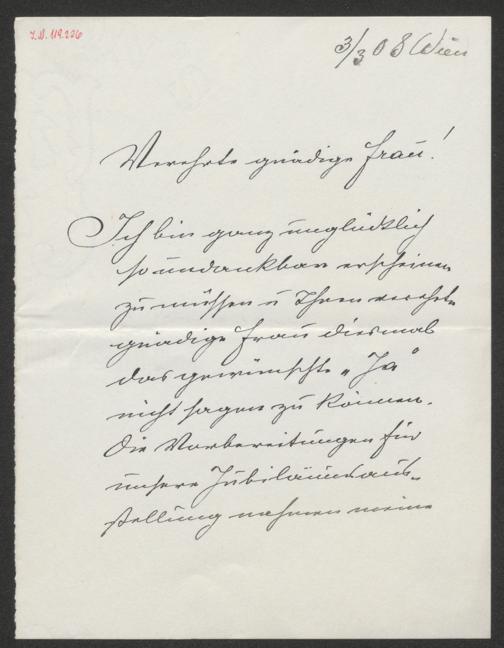 I.N. 119.226
3/3 08 Wien
Verehrte gnädige Frau!
Ich bin ganz unglücklich
so undankbar erscheinen
zu müssen u Ihnen verehrte
gnädige Frau diesmal
das gewünschte „Ja"
nicht sagen zu können.
Die Vorbereitungen für
unsere Jubiläumsaus-
stellung nehmen meine